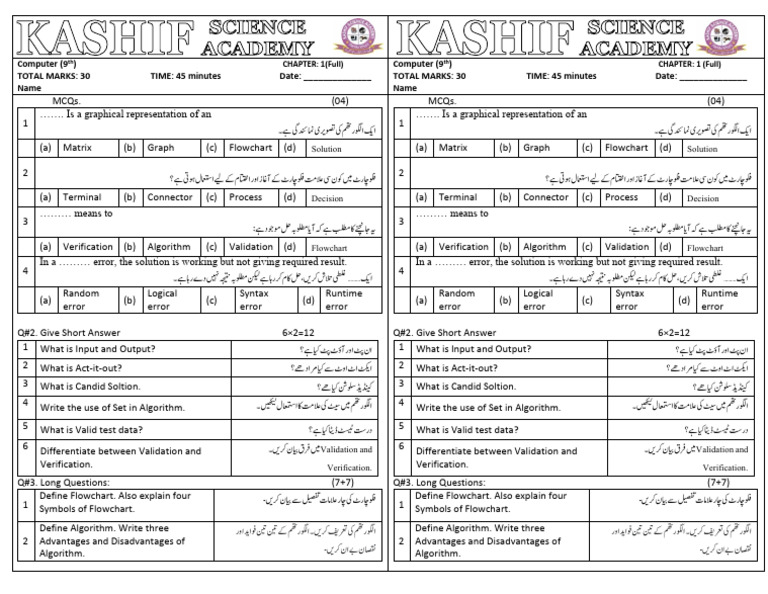 KASHIF SCIENCE ACADEMY
Computer (9th) CHAPTER: 1(Full)
TOTAL MARKS: 30 TIME: 45 minutes Date: _______________
Name
MCQs. (04)
1 ……. Is a graphical representation of an
ایک الگورتھم کی تصویری نمائندگی ہے۔
(a) Matrix (b) Graph (c) Flowchart (d) Solution
2 فلوچارٹ میں کون سی علامت فلوچارٹ کے آغاز اور اختتام کے لیے استعمال ہوتی ہے؟
(a) Terminal (b) Connector (c) Process (d) Decision
3 ……… means to
یہ جانچنے کا مطلب ہے کہ آیا مطلوبہ حل موجود ہے:
(a) Verification (b) Algorithm (c) Validation (d) Flowchart
4 In a ……… error, the solution is working but not giving required result.
ایک ...... غلطی تلاش کریں، حل کام کر رہا ہے لیکن مطلوبہ نتیجہ نہیں دے رہا ہے۔
(a) Random error (b) Logical error (c) Syntax error (d) Runtime error
Q#2. Give Short Answer 6×2=12
1 What is Input and Output? ان پٹ اور آؤٹ پٹ کیا ہے؟
2 What is Act-it-out? ایکٹ اٹ اوٹ سے کیا مراد ھے؟
3 What is Candid Soltion. کینڈیڈ سلوشن کیا ھے؟
4 Write the use of Set in Algorithm. الگورتھم میں سیٹ کی علامت کا استعمال لیکھیں۔
5 What is Valid test data? درست ٹیسٹ ڈیٹا کیا ہے؟
6 Differentiate between Validation and Verification. Validation and Verification. میں فرق بیان کریں۔
Q#3. Long Questions: (7+7)
1 Define Flowchart. Also explain four Symbols of Flowchart. فلوچارٹ کی چار علامات تفصیل سے بیان کریں۔
2 Define Algorithm. Write three Advantages and Disadvantages of Algorithm. الگورتھم کی تعریف کریں۔ الگورتھم کے تین تین فواید اور نقصان بے ان کریں۔
KASHIF SCIENCE ACADEMY
Computer (9th) CHAPTER: 1 (Full)
TOTAL MARKS: 30 TIME: 45 minutes Date: _______________
Name
MCQs. (04)
1 ……. Is a graphical representation of an
ایک الگورتھم کی تصویری نمائندگی ہے۔
(a) Matrix (b) Graph (c) Flowchart (d) Solution
2 فلوچارٹ میں کون سی علامت فلوچارٹ کے آغاز اور اختتام کے لیے استعمال ہوتی ہے؟
(a) Terminal (b) Connector (c) Process (d) Decision
3 ……… means to
یہ جانچنے کا مطلب ہے کہ آیا مطلوبہ حل موجود ہے:
(a) Verification (b) Algorithm (c) Validation (d) Flowchart
4 In a ……… error, the solution is working but not giving required result.
ایک ...... غلطی تلاش کریں، حل کام کر رہا ہے لیکن مطلوبہ نتیجہ نہیں دے رہا ہے۔
(a) Random error (b) Logical error (c) Syntax error (d) Runtime error
Q#2. Give Short Answer 6×2=12
1 What is Input and Output? ان پٹ اور آؤٹ پٹ کیا ہے؟
2 What is Act-it-out? ایکٹ اٹ اوٹ سے کیا مراد ھے؟
3 What is Candid Soltion. کینڈیڈ سلوشن کیا ھے؟
4 Write the use of Set in Algorithm. الگورتھم میں سیٹ کی علامت کا استعمال لیکھیں۔
5 What is Valid test data? درست ٹیسٹ ڈیٹا کیا ہے؟
6 Differentiate between Validation and Verification. Validation and Verification. میں فرق بیان کریں۔
Q#3. Long Questions: (7+7)
1 Define Flowchart. Also explain four Symbols of Flowchart. فلوچارٹ کی چار علامات تفصیل سے بیان کریں۔
2 Define Algorithm. Write three Advantages and Disadvantages of Algorithm. الگورتھم کی تعریف کریں۔ الگورتھم کے تین تین فواید اور نقصان بے ان کریں۔